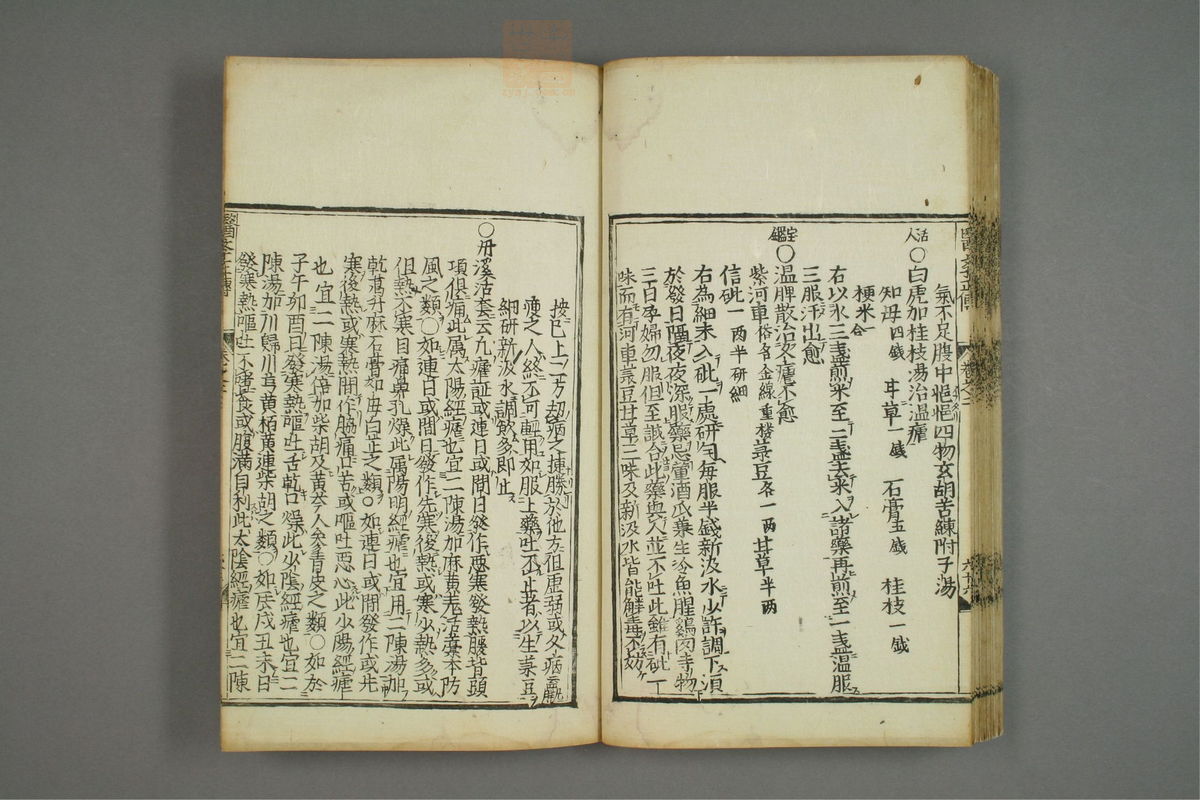 氣不足腹中𢙢𢙢四物玄胡苦練附子湯
活人
○白虎加桂枝湯治温瘧
知母四戔 甘草一戔 石膏五戔 桂枝一戔
粳米一合
右以水三盞煎米至二盞去米入諸藥再煎至一盞温服
三服汗出愈
宝鑑
○温脾散治久瘧不愈
紫河車俗名金線重楼菉豆各一两甘草半两
信砒一两半研細
右為細末入砒一處研匀每服半戔新汲水少許調下須
於發日隔夜夜深服藥忌葷酒瓜菓生冷魚腥鷄肉等物
三日孕婦勿服但至誠合此藥與人並不吐此雖有砒一
味而有河車菉豆甘草三味及新汲水皆能解毒不妨
按已上二方刼病之捷勝於他方但虚弱或久病羸
瘦之人終不可輕用如服上藥吐不止者以生菉豆
細研新汲水調飲多即止
○丹溪活套云凡瘧証或連日或間日發作悪寒發熱腰背頭
項俱痛此属太陽經瘧也宜二陳湯加麻黄羌活藁本防
風之類○如連日或間日發作先寒後熱或寒少熱多或
但熱不寒目痛鼻孔燥此属陽明經瘧也宜用二陳湯加
乾葛升麻石膏知母白芷之類○如連日或間發作或先
寒後熱或寒熱間作脇痛口苦或嘔吐悪心此少陽經瘧
也宜二陳湯倍加柴胡及黄芩人參青皮之類○如於
子午卯酉日發寒熱嘔吐舌乾口燥此少陰經瘧也宜二
陳湯加川歸川芎黄栢黄連柴胡之類○如辰戌丑未日
發寒熱嘔吐不嗜食或腹滿自利此太陰經瘧也宜二陳